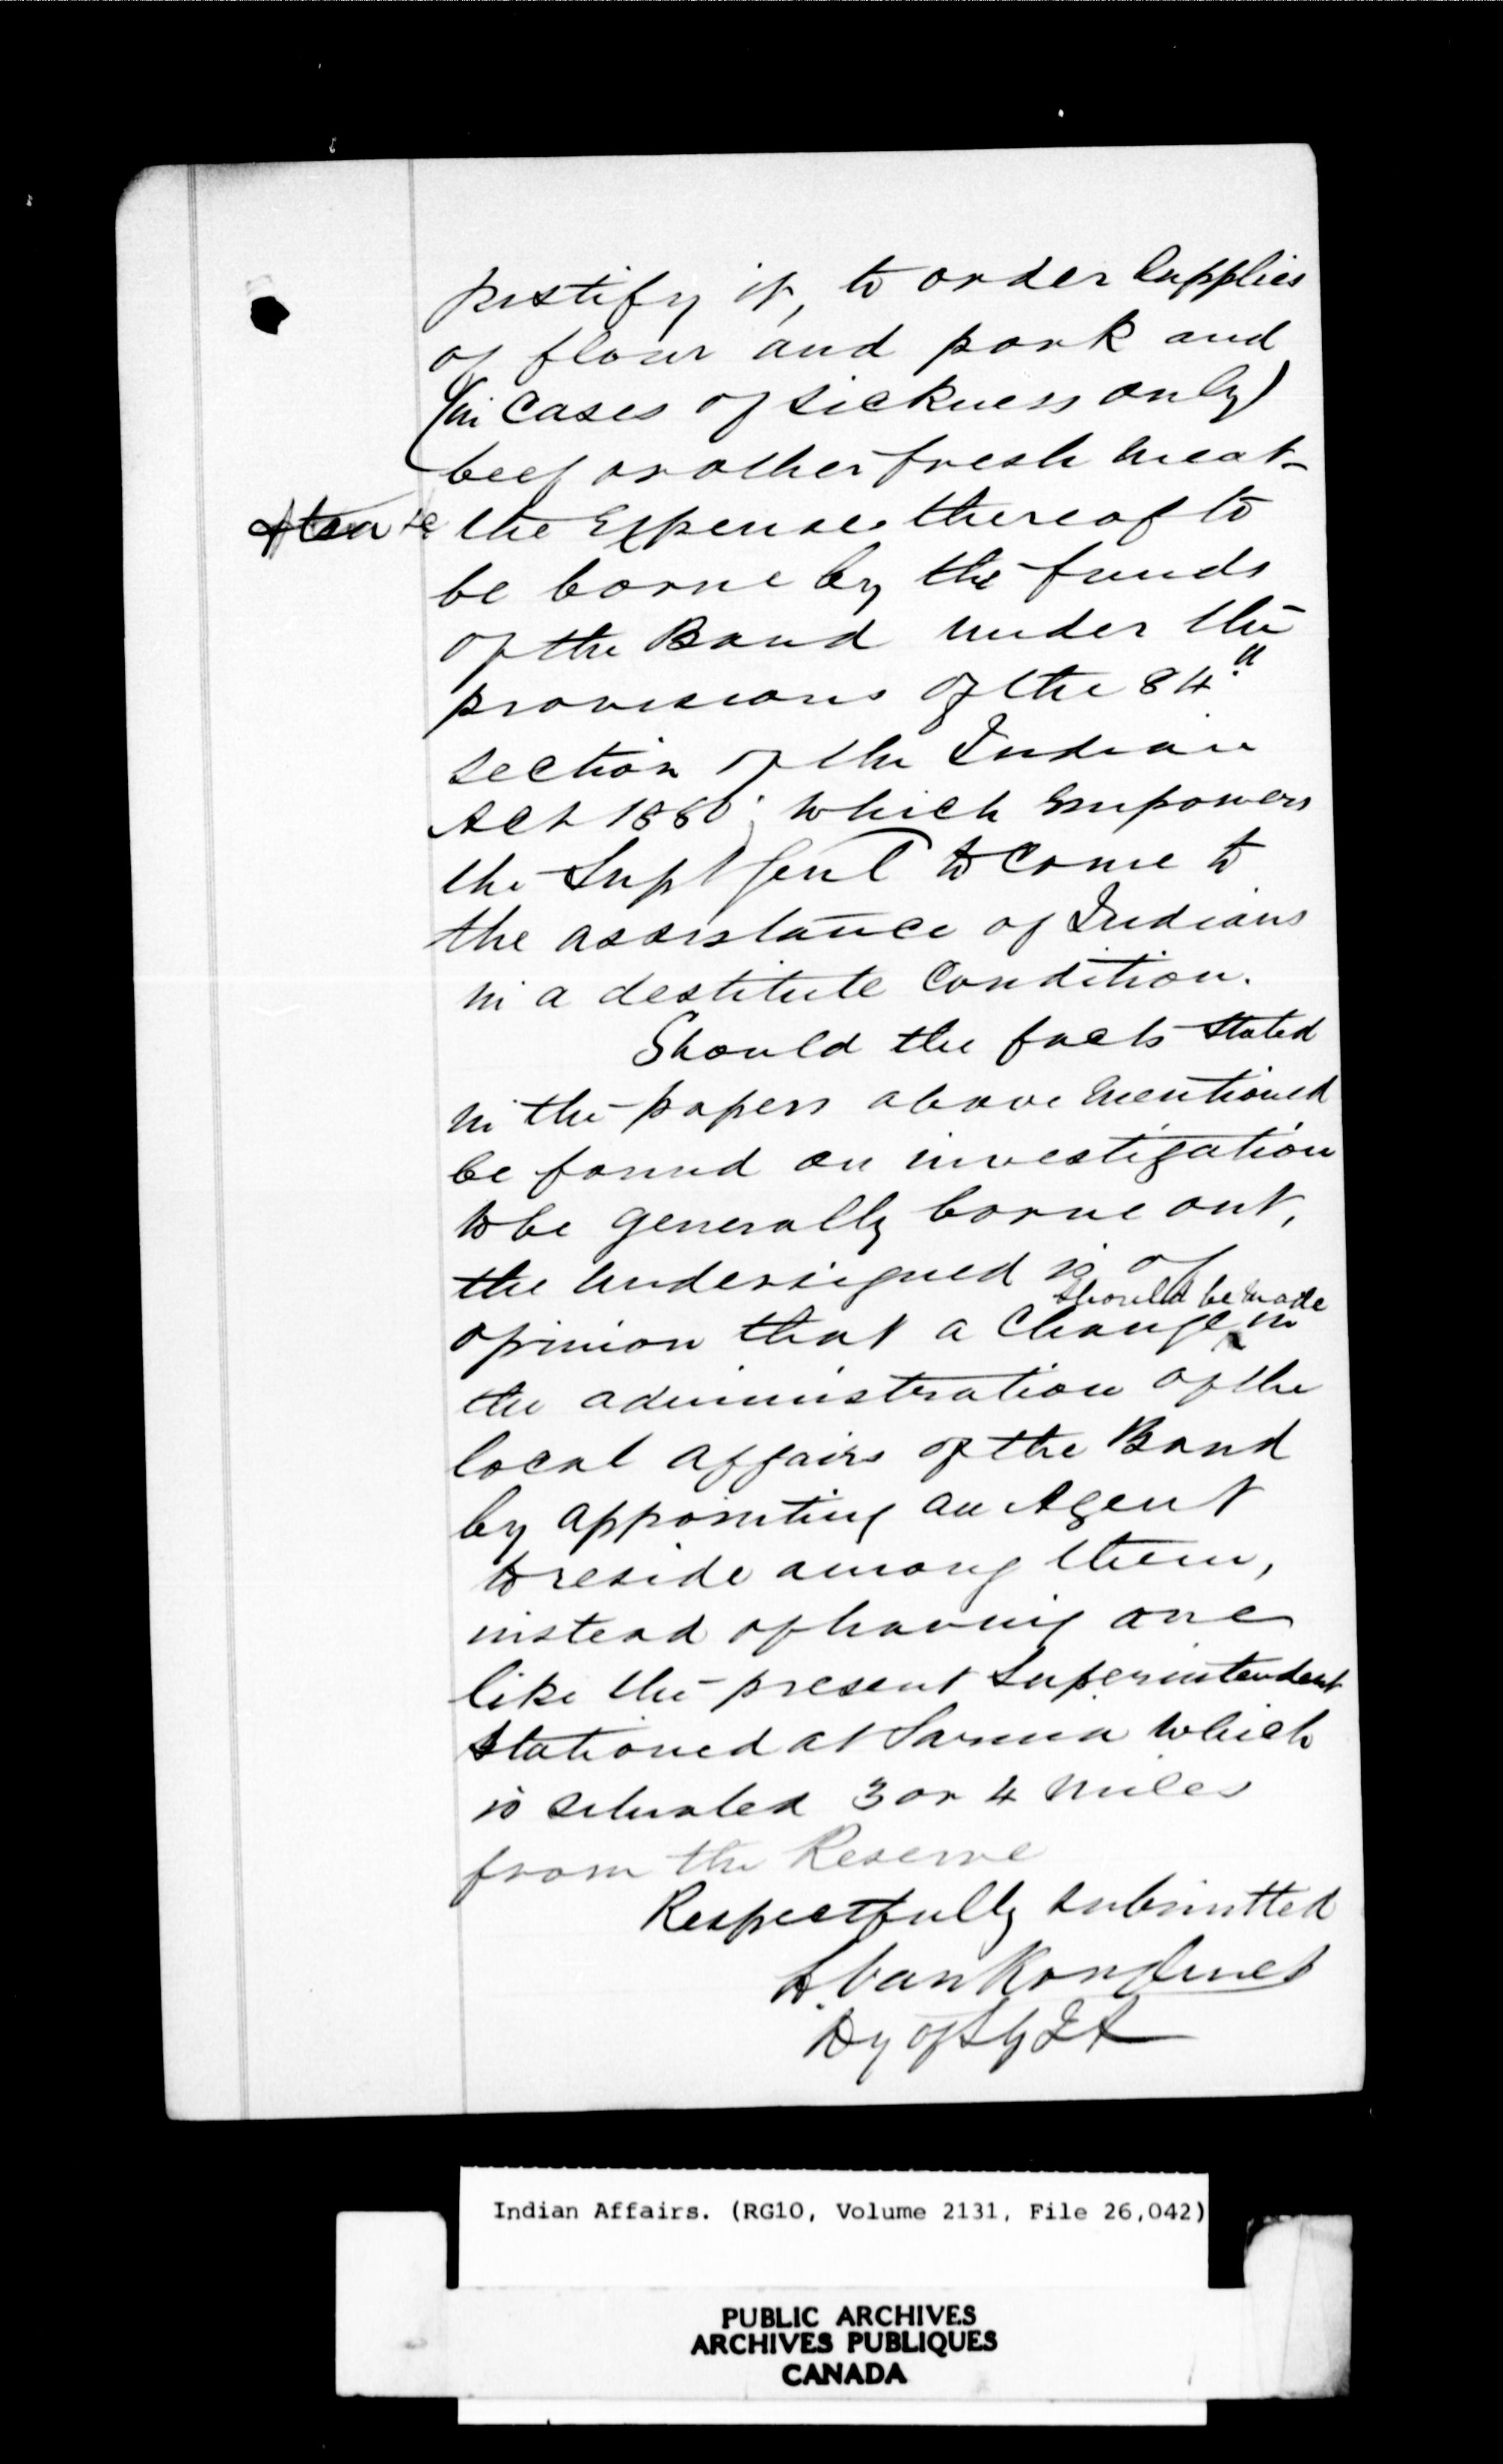 justify it, to order supplies
of flour and pork and
(in cases of sickness only)
beef or other fresh meat-
the expense thereof to
be borne by the funds
of the Band under the
provisions of the 84"
section of the Indian
Act 1880; which empowers
the Supt Genl to come to
the assistance of Indians
in a destitute condition.
Should the facts stated
in the papers above mentioned
be found on investigation
to be generally borne out,
the undersigned is of
should be made
opinion that a change in
the administration of the
local affairs of the Band
by appointing an Agent
to reside among them,
instead of having one
like the present Superintendent
stationed at Sarnia which
is situated 3 or 4 miles
from the Reserve
Respectfully submitted
L. VanKoughnet
Dy of S G I A
Indian Affairs. (RG10, Volume 2131, File 26,042)
PUBLIC ARCHIVES
ARCHIVES PUBLIQUES
CANADA